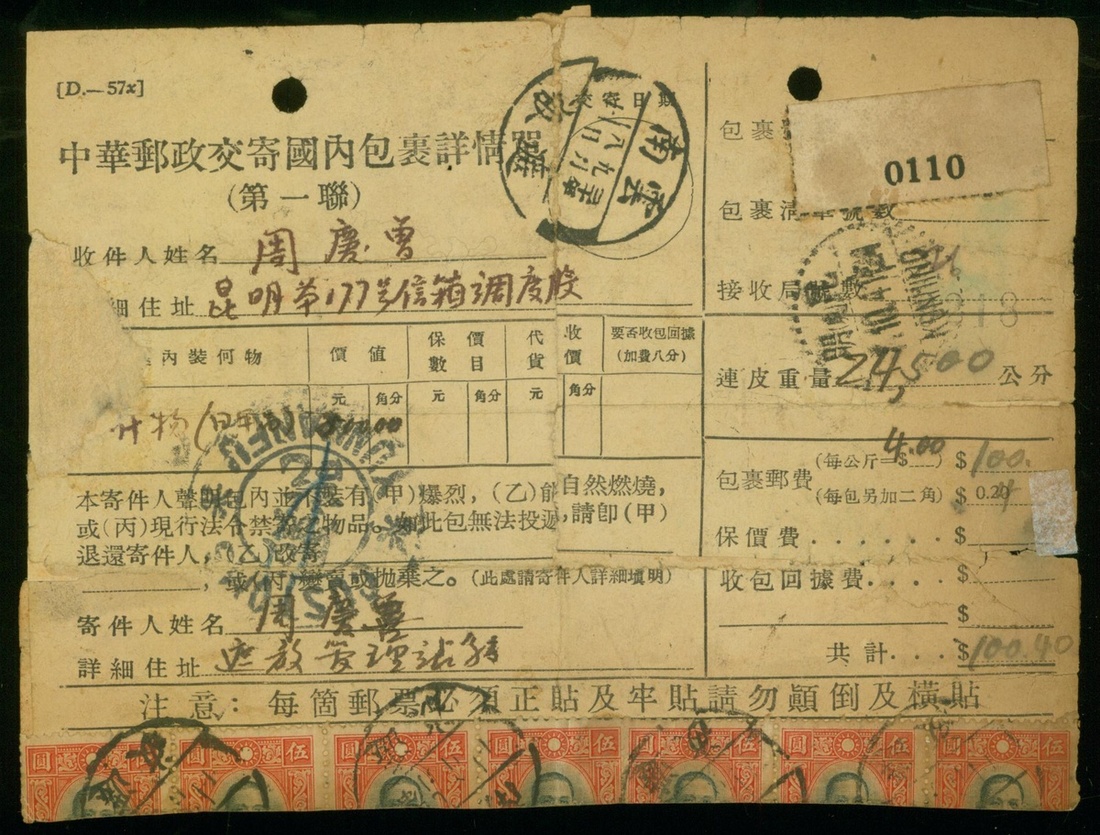 [D.—57x]
中華郵政交寄國內包裹詳情單
(第一聯)
交寄日期
雲南
遮放
0110
包裹
包裹清單號數
收件人姓名 周慶曾
細住址 昆明第177號信箱調度股
接收局號數
218
KUNMING
內裝何物
價值
保價
數目
代收
貨價
要否收包回據
(加費八分)
元 角分 元 角分 元 角分
什物(日用品) 500.00
連皮重量 24,500 公分
包裹郵費 (每公斤 $ 4.00) $ 100.
(每包另加二角) $ 0.20
保價費...... $
收包回據費.... $
$
共計... $ 100.40
YUNNANFU
本寄件人聲明包內並不裝有(甲)爆烈,(乙)能自然燃燒,
或(丙)現行法令禁寄之物品。如此包無法投遞,請卽(甲)
退還寄件人,(乙)改寄
,或(丙)變賣或抛棄之。(此處請寄件人詳細塡明)
寄件人姓名 周慶曾
詳細住址 遮放管理站
注意: 每箇郵票必須正貼及牢貼請勿顚倒及橫貼
圓 伍 圓 伍 圓 伍 圓 伍 圓 伍 圓 伍 圓 伍